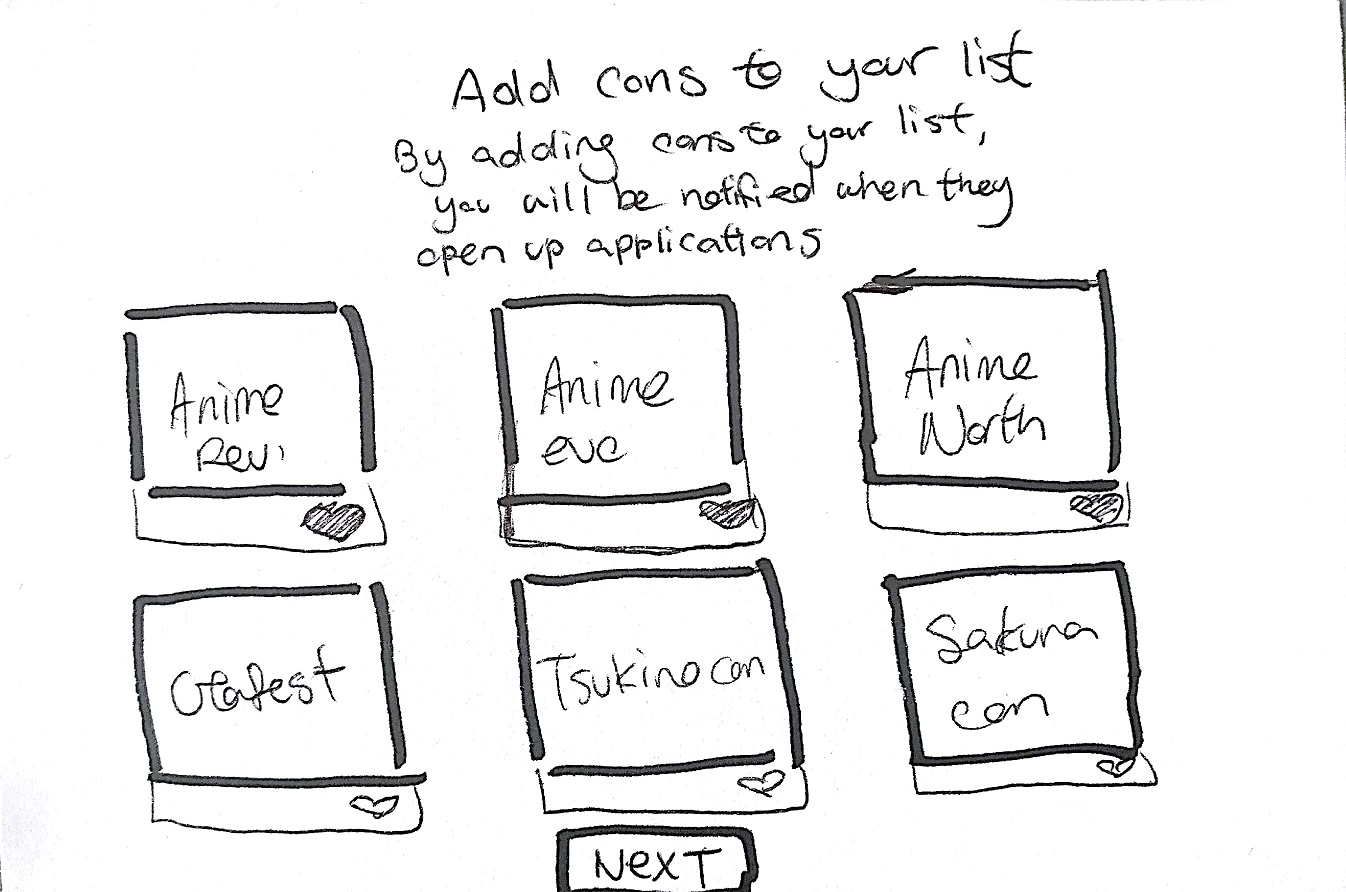 Add cons to your list
By adding cons to your list,
you will be notified when they
open up applications
Anime
Revi
Anime
evo
Anime
North
Otafest
Tsukino con
Sakura
con
NexT